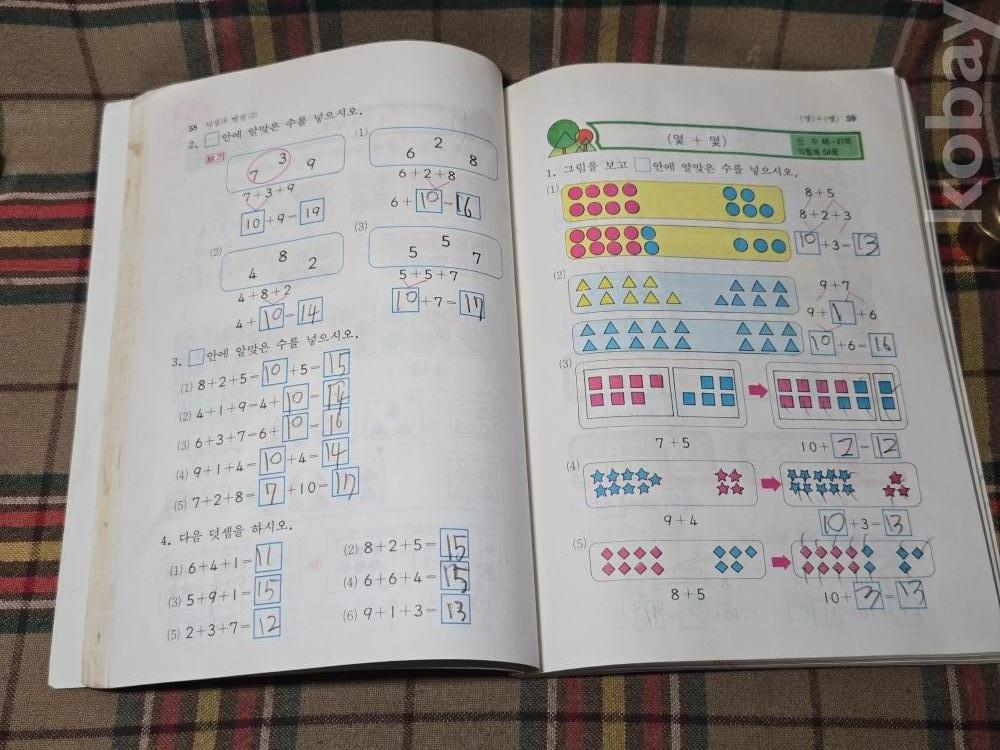 58 덧셈과 뺄셈(2)
2. □안에 알맞은 수를 넣으시오.
보기
3
7 9
7+3+9
10+9=19
(1)
2
6 8
6+2+8
6+10=16
(2)
8
4 2
4+8+2
4+10=14
(3)
5
5 7
5+5+7
10+7=17
3. □안에 알맞은 수를 넣으시오.
(1) 8+2+5=10+5=15
(2) 4+1+9=4+10=14
(3) 6+3+7=6+10=16
(4) 9+1+4=10+4=14
(5) 7+2+8=7+10=17
4. 다음 덧셈을 하시오.
(1) 6+4+1=11
(2) 8+2+5=15
(3) 5+9+1=15
(4) 6+6+4=15
(5) 2+3+7=12
(6) 9+1+3=13
(몇)+(몇) 59
(몇 + 몇)
산 수 46~47쪽
익힘책 54쪽
1. 그림을 보고 □안에 알맞은 수를 넣으시오.
(1)
8+5
8+2+3
10+3=13
(2)
9+7
9+1+6
10+6=16
(3)
7+5
10+2=12
(4)
9+4
10+3=13
(5)
8+5
10+3=13
kobay